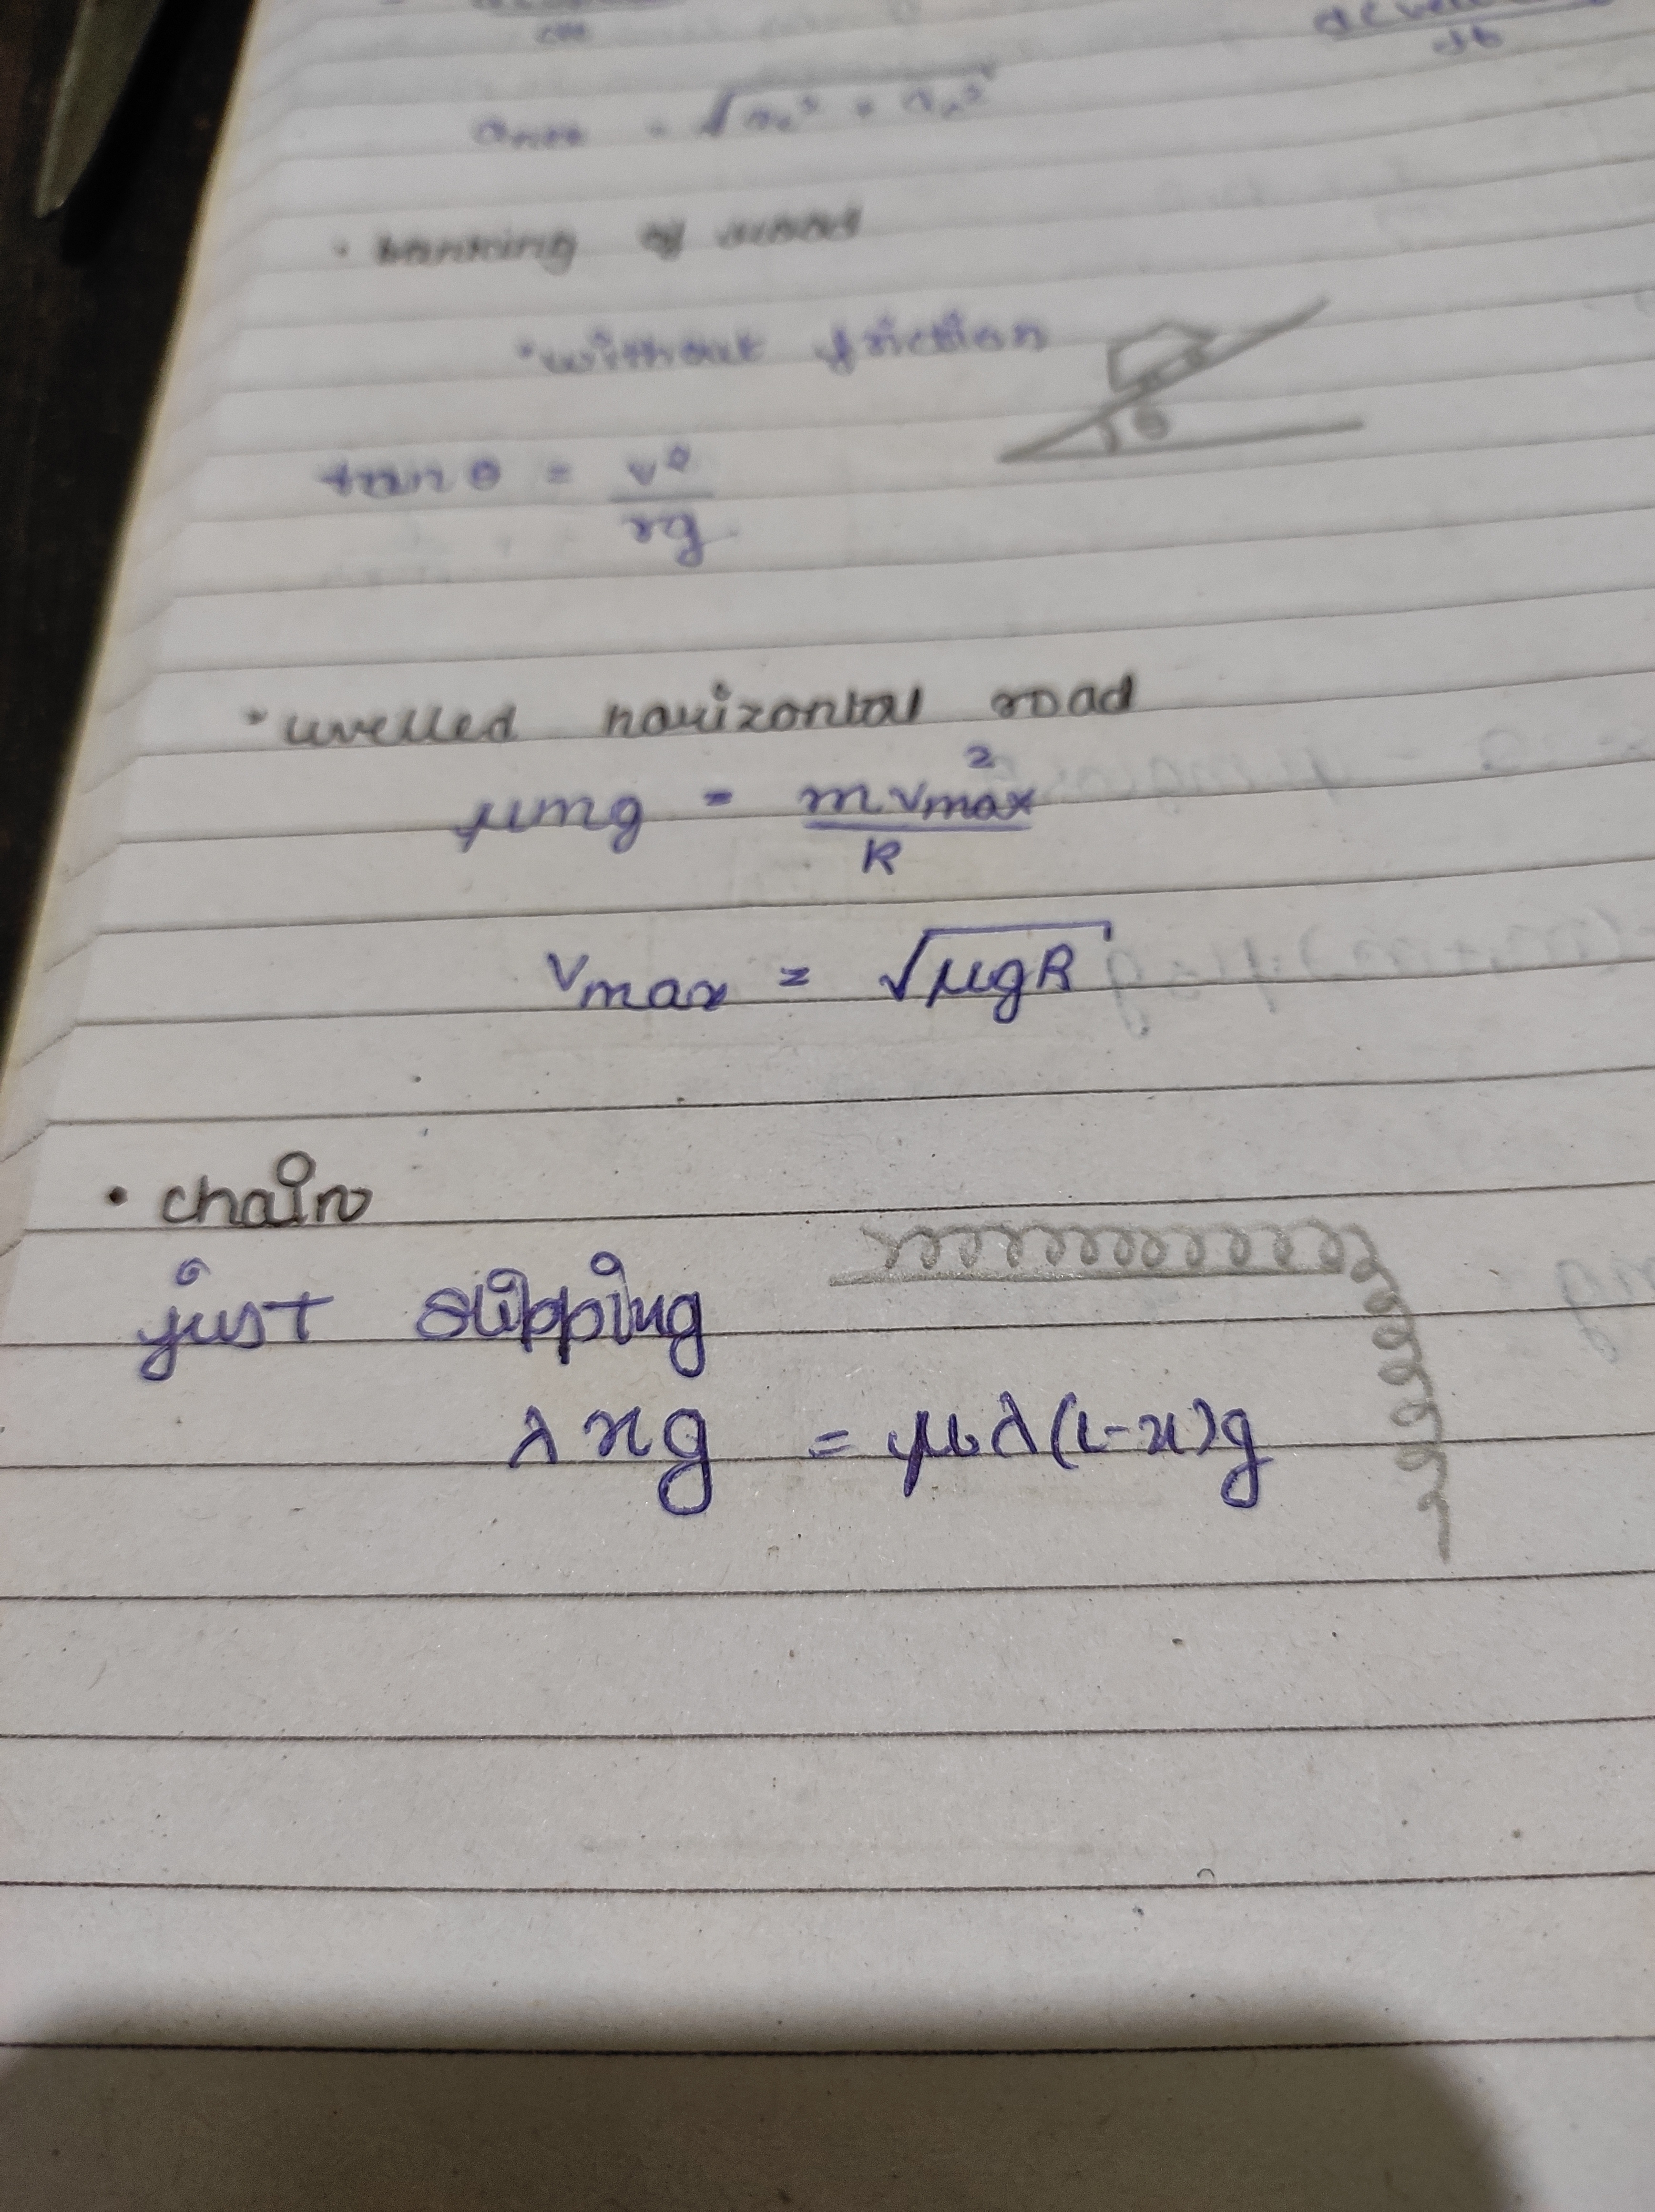 anet = √at² + an²
• banking of road
• without friction
θ
tanθ = v²/rg
• levelled horizontal road
μmg = mvmax²/R
vmax = √μgR
• chain
just slipping
λxg = μλ(L-x)g